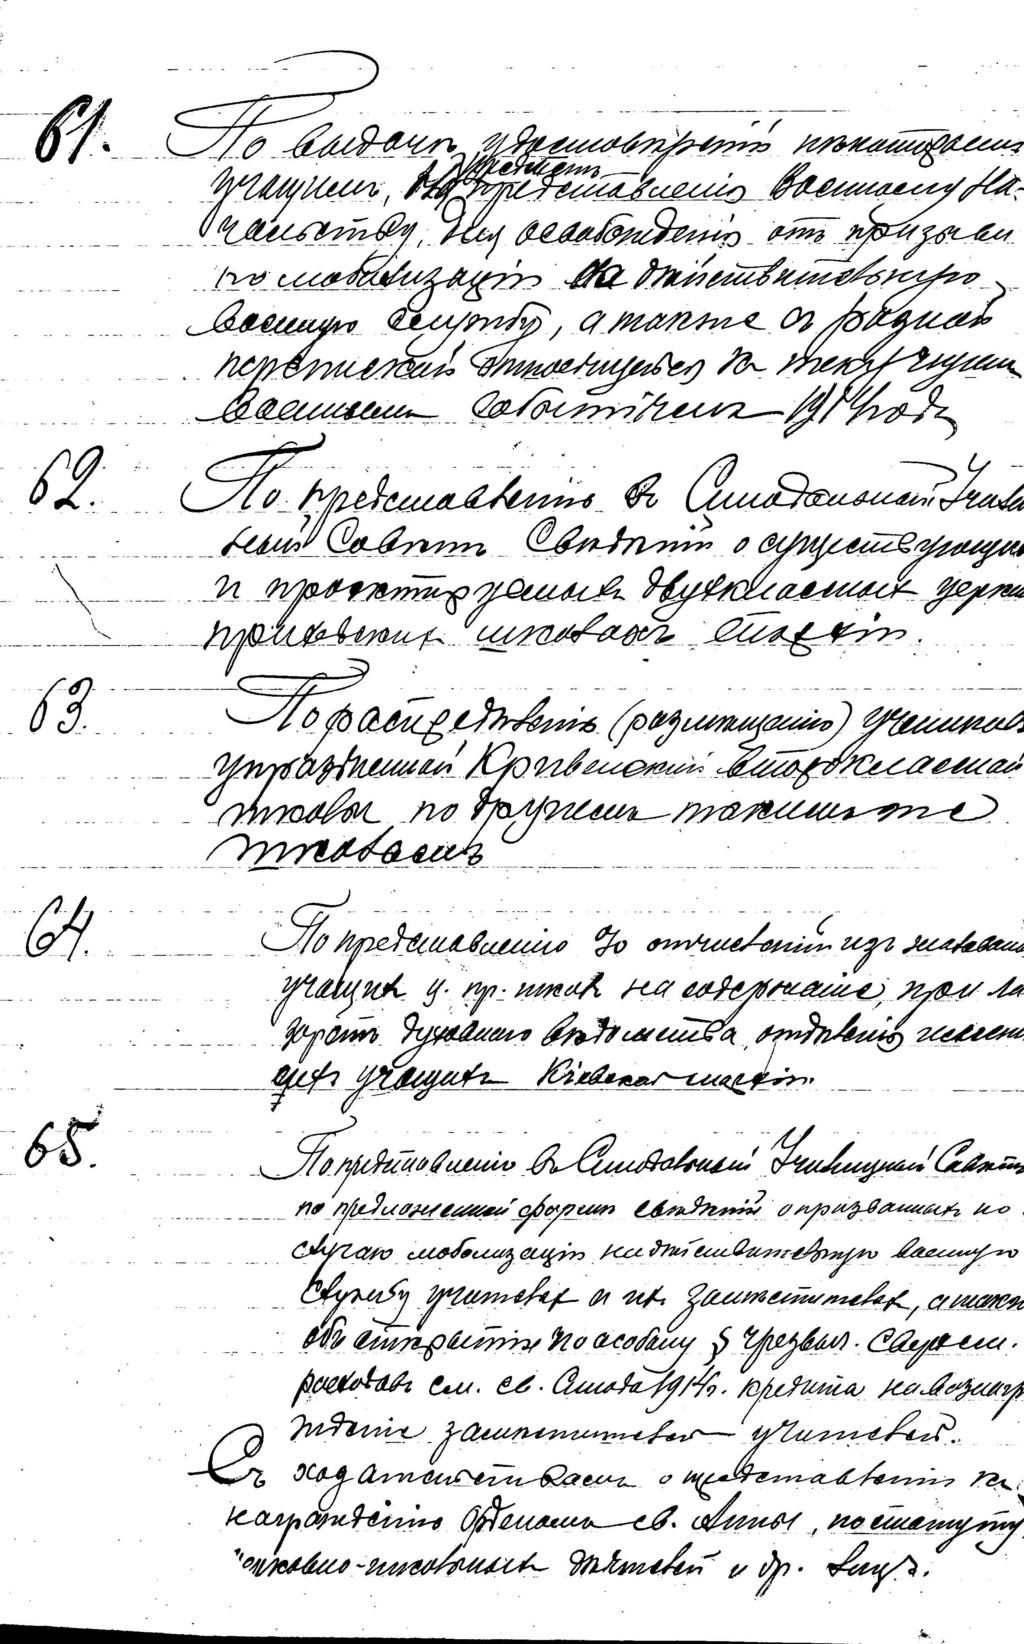 61. По выдачѣ удостовѣреній нѣкоторымъ
учащимъ, для представленія Военному На-
чальству, для освобожденія отъ призыва
по мобилизаціи на дѣйствительную
военную службу, а также съ разной
перепиской относящейся къ текущимъ
военнымъ событіямъ 1914 года
62. По представленію въ Синодальный Учили
ный Совѣтъ Свѣдѣній о существующи
и проэктируемыхъ двухклассныхъ церко
приходскихъ школахъ епархіи.
63. По распредѣленію (размѣщенію) учениковъ
упраздненной Кривенской второклассной
школы по другимъ такимъ же
школамъ
64. По представленію % отчисленій изъ жалованья
учащихъ ц. пр. школъ на содержаніе, при ла
заретѣ духовнаго вѣдомства, отдѣленія имени
учащихъ Кіевской епархіи.
65. По представленію въ Синодальный Училищный Совѣтъ
по предложенной формѣ свѣдѣній о призванныхъ по
случаю мобилизаціи на дѣйствительную военную
службу учителей и ихъ замѣстителей, а также
объ открытіи по особому § чрезвыч. сверхсм.
расходовъ см. св. Синода 1914 г. кредита на вознагр
жденіе замѣстителей учителей.
Съ ходатайствами о представленіи къ
награжденію Орденомъ св. Анны, по статуту
церковно-школьныхъ дѣятелей и др. лицъ.